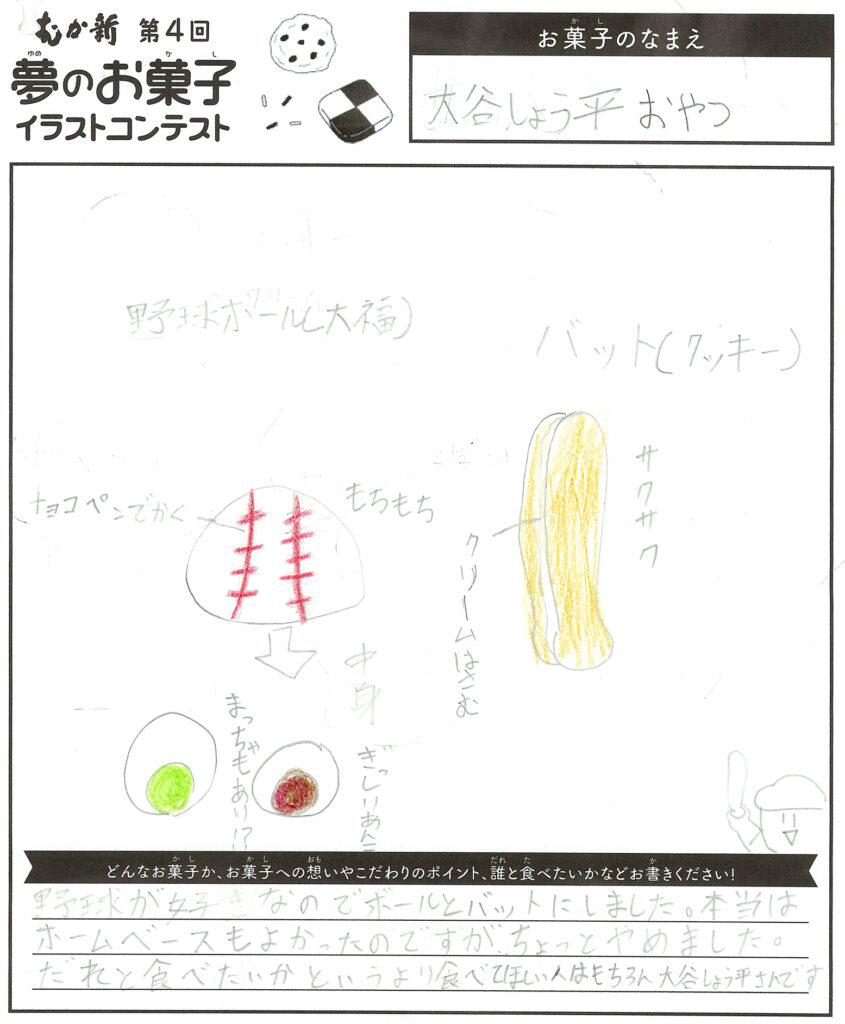 むか新 第4回
夢のお菓子
イラストコンテスト
お菓子のなまえ
大谷しょう平おやつ
野球ボール(大福)
バット(クッキー)
チョコペンでかく
もちもち
サクサク
クリームはさむ
中身
まっちゃもあり!?
ぎっしりあんこ
どんなお菓子か、お菓子への想いやこだわりのポイント、誰と食べたいかなどお書きください!
野球が好きなのでボールとバットにしました。本当は
ホームベースもよかったのですが、ちょっとやめました。
だれと食べたいかというより食べてほしい人はもちろん大谷しょう平さんです